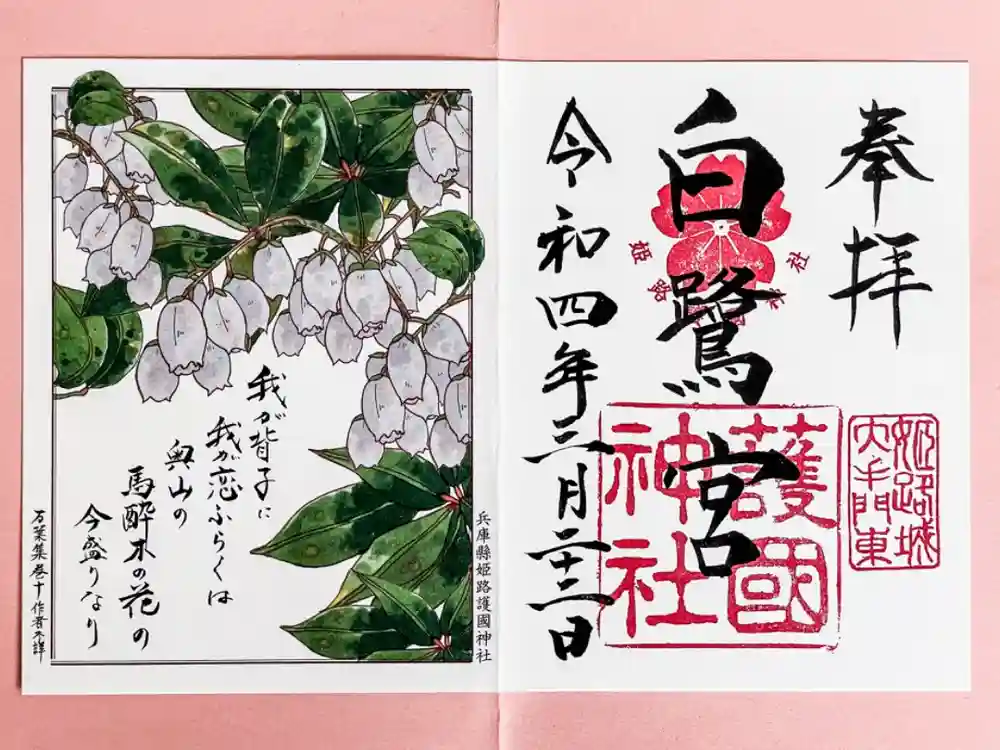 奉拝
姫路城
大手門東
白鷺宮
姫路
社
護國
神社
令和四年三月二十三日
兵庫縣姫路護國神社
我が背子に
我が恋ふらくは
奥山の
馬酔木の花の
今盛りなり
万葉集巻十 作者不詳